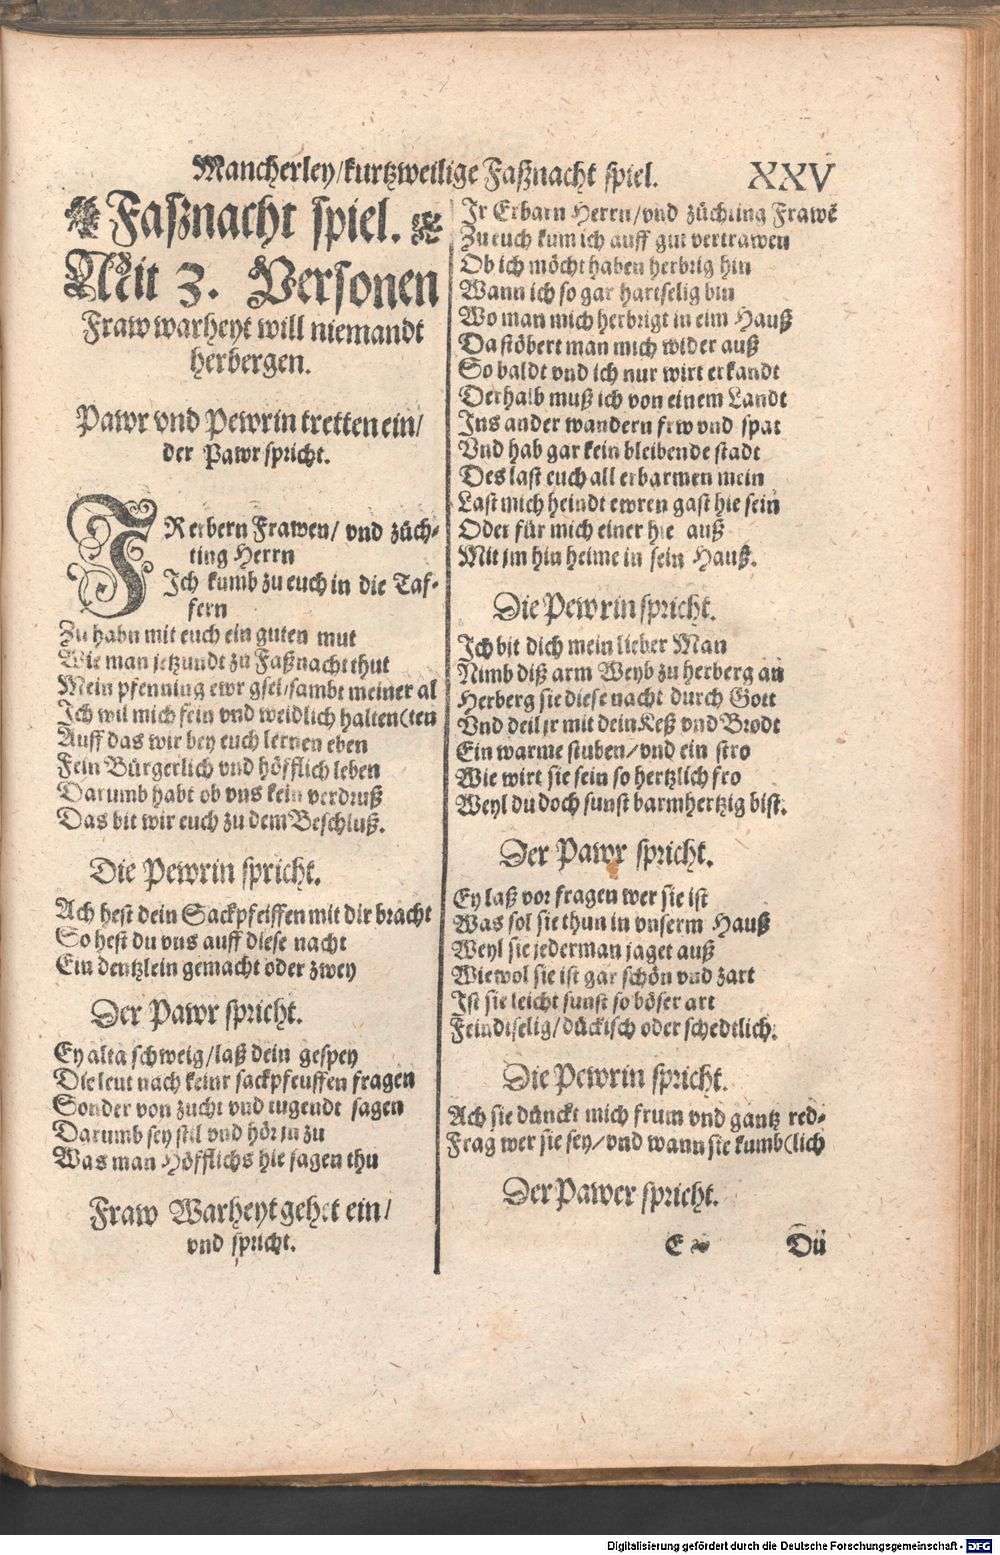 Mancherley/kurtzweilige Faßnacht spiel. XXV
Faßnacht spiel.
Mit 3. Personen
Fraw warheyt will niemandt
herbergen.
Pawr vnd Pewrin tretten ein/
der Pawr spricht.
IR erbern Frawen/ vnd züch-
ting Herrn
Ich kumb zu euch in die Taf-
fern
Zu habn mit euch ein guten mut
Wie man jetzundt zu Faßnacht thut
Mein pfenning ewr gsel/sambt meiner al
Ich wil mich fein vnd weidlich halten(ten
Auff das wir bey euch lernen eben
Fein Bürgerlich vnd höfflich leben
Darumb habt ob vns kein verdruß
Das bit wir euch zu dem Beschluß.
Die Pewrin spricht.
Ach hest dein Sackpfeiffen mit dir bracht
So hest du vns auff diese nacht
Ein dentzlein gemacht oder zwey
Der Pawr spricht.
Ey alta schweig/laß dein gespey
Die leut nach keinr sackpfeuffen fragen
Sonder von zucht vnd tugendt sagen
Darumb sey stil vnd hör jn zu
Was man Höfflichs hie sagen thu
Fraw Warheyt gehet ein/
vnd spricht.
Ir Erbarn Herrn/vnd züchting Frawẽ
Zu euch kum ich auff gut vertrawen
Ob ich möcht haben herbrig hin
Wann ich so gar hartselig bin
Wo man mich herbrigt in eim Hauß
Da stöbert man mich wider auß
So baldt vnd ich nur wirt erkandt
Derhalb muß ich von einem Landt
Ins ander wandern frw vnd spat
Vnd hab gar kein bleibende stadt
Des last euch all erbarmen mein
Last mich heindt ewren gast hie sein
Oder für mich einer hie auß
Mit jm hin heime in sein Hauß.
Die Pewrin spricht.
Ich bit dich mein lieber Man
Nimb diß arm Weyb zu herberg an
Herberg sie diese nacht durch Gott
Vnd deil jr mit dein Keß vnd Brodt
Ein warme stuben/vnd ein stro
Wie wirt sie sein so hertzlich fro
Weyl du doch sunst barmhertzig bist.
Der Pawr spricht.
Ey laß vor fragen wer sie ist
Was sol sie thun in vnserm Hauß
Weyl sie jederman jaget auß
Wiewol sie ist gar schön vnd zart
Ist sie leicht sunst so böser art
Feindtselig/dückisch oder schedtlich.
Die Pewrin spricht.
Ach sie dünckt mich frum vnd gantz red-
Frag wer sie sey/vnd wann sie kumb(lich
Der Pawer spricht.
E Dü
Digitalisierung gefördert durch die Deutsche Forschungsgemeinschaft - DFG